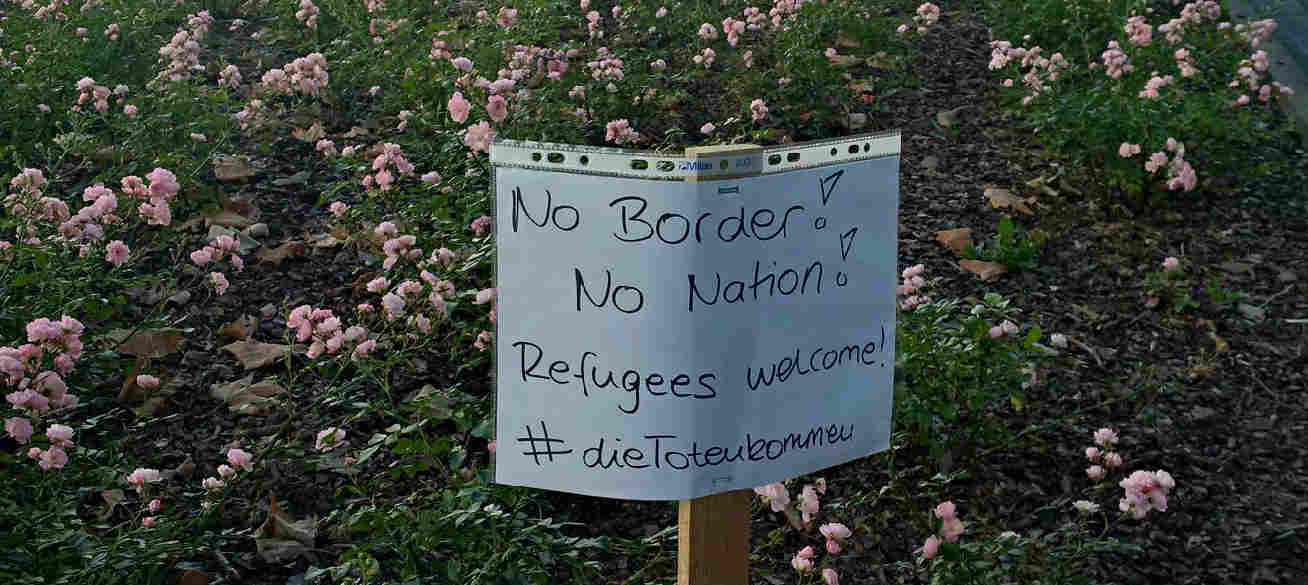 No Border!
No Nation!
Refugees welcome!
#dieTotenkommen